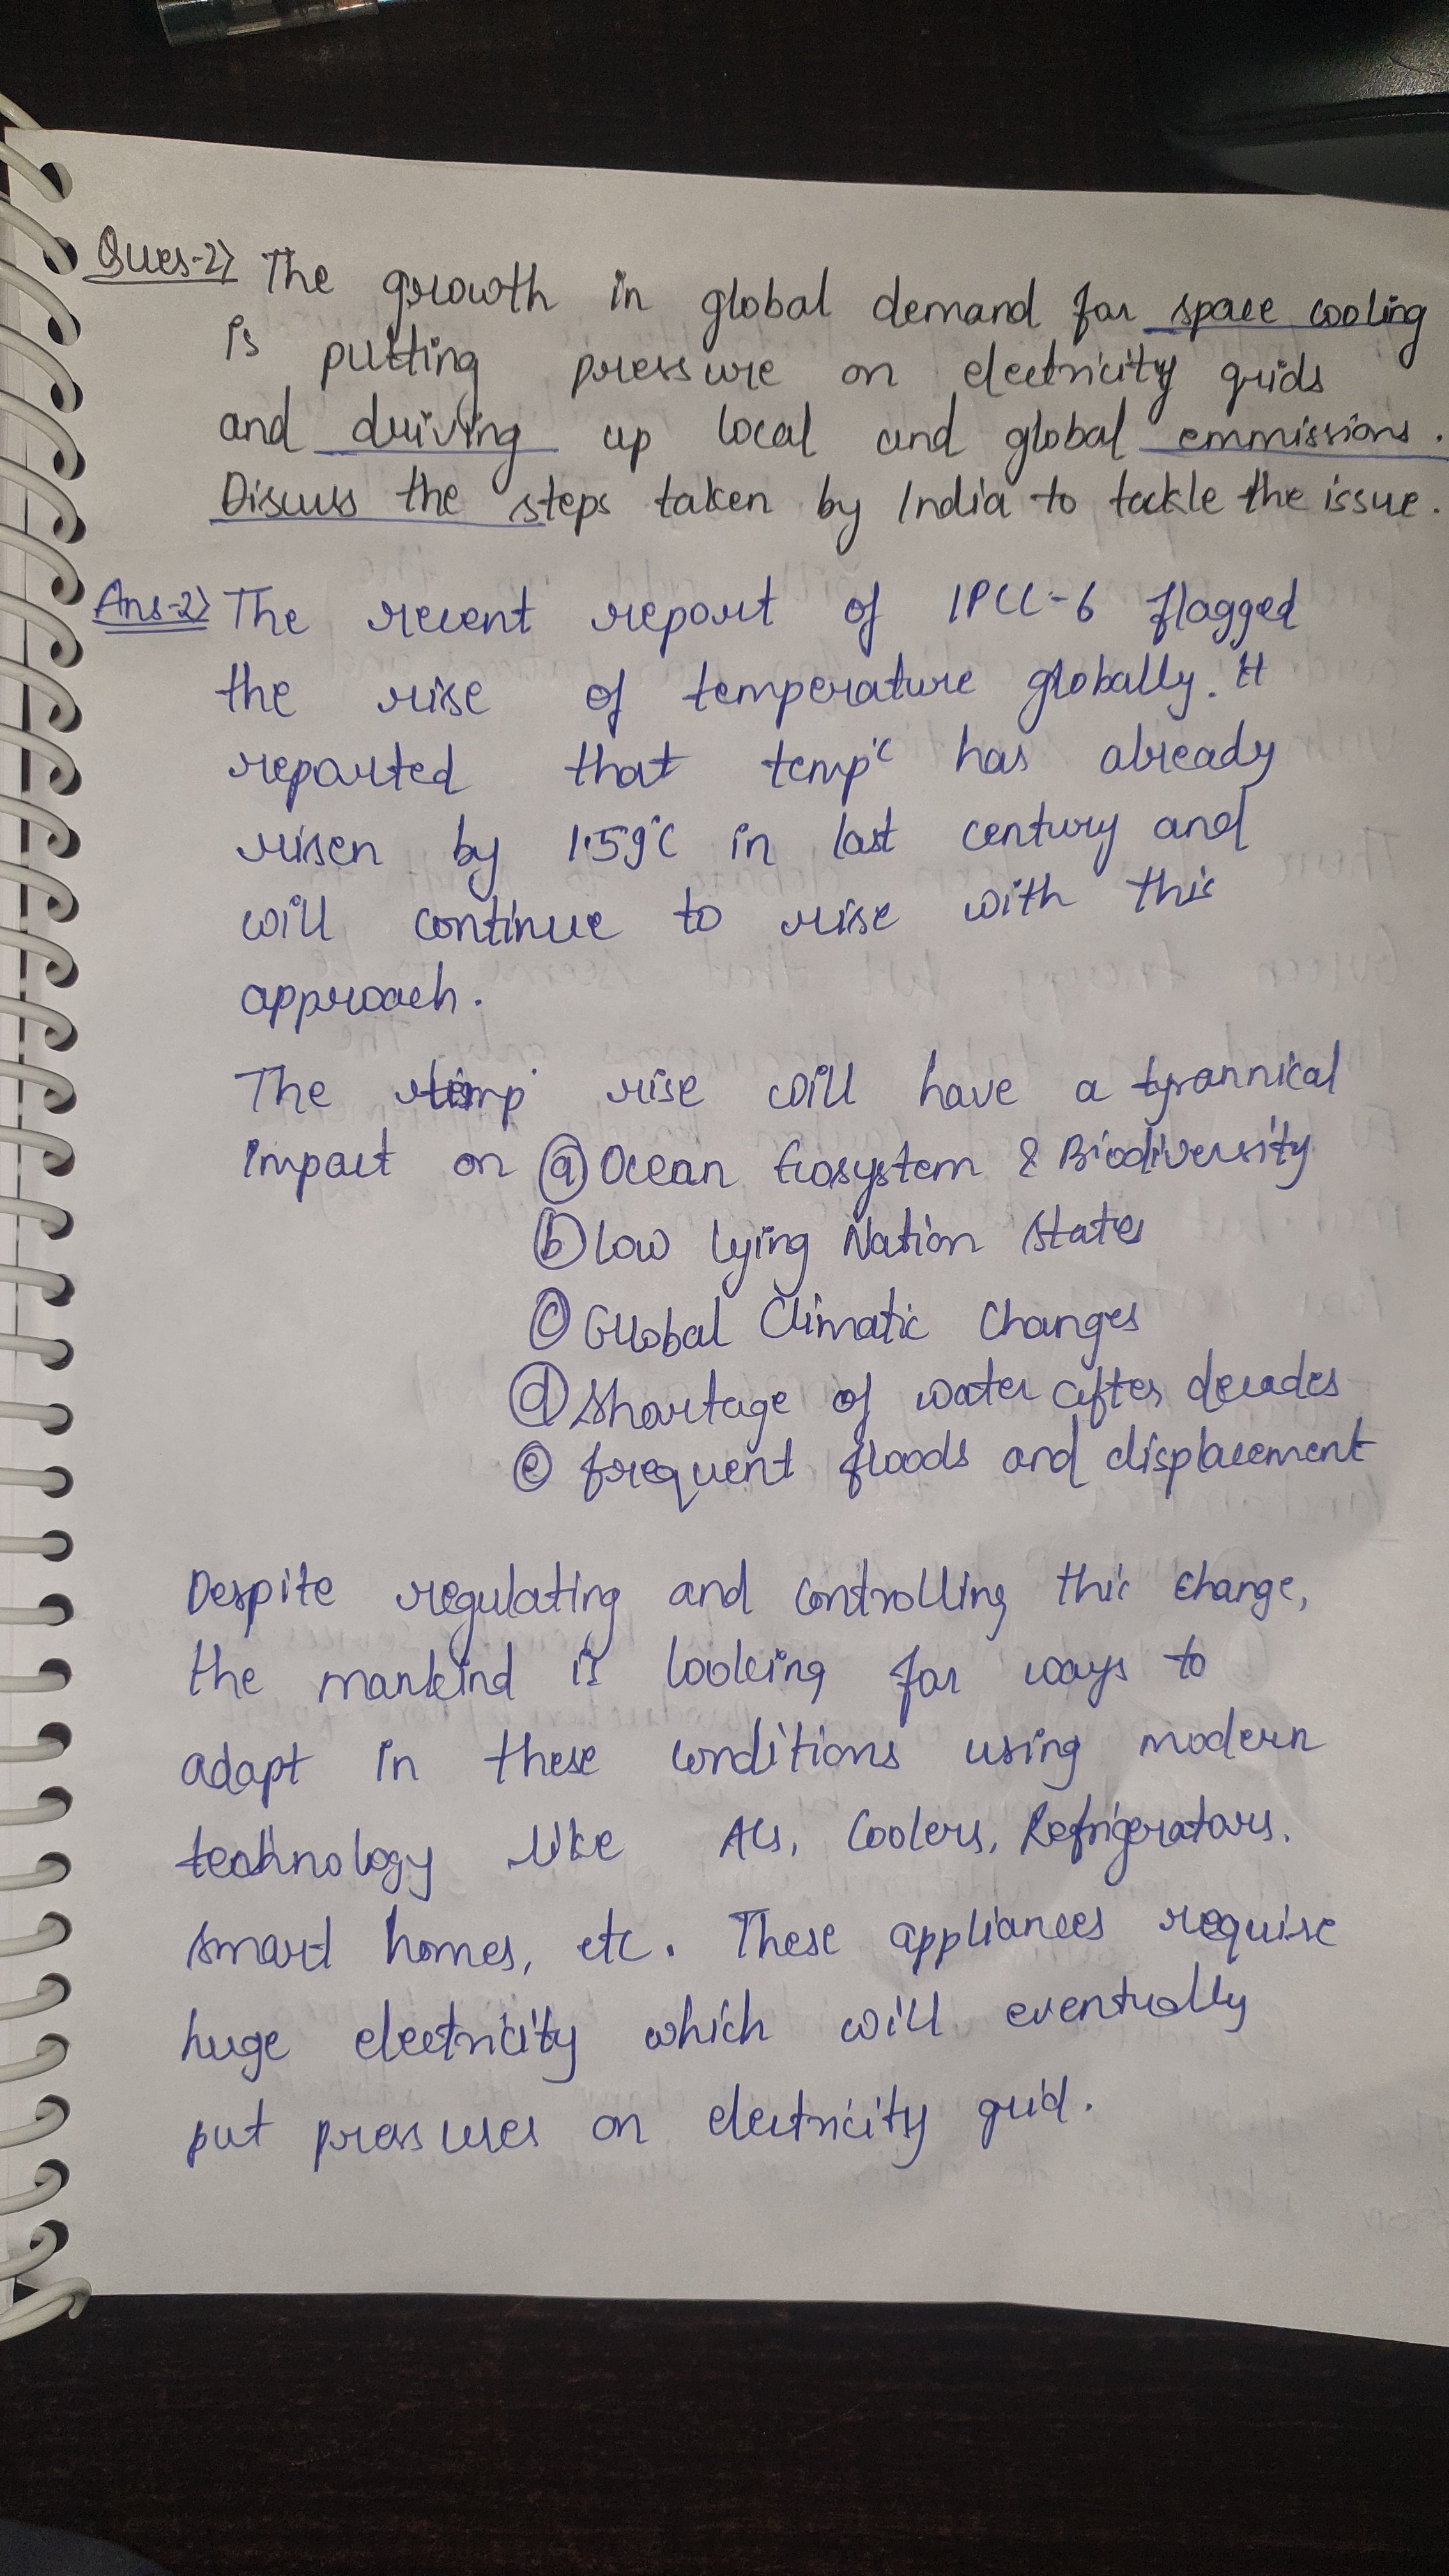 Ques-2> The growth in global demand for space cooling
is putting pressure on electricity grids
and driving up local and global emmissions.
Discuss the steps taken by India to tackle the issue.
Ans-2> The recent report of IPCC-6 flagged
the rise of temperature globally. It
reported that temp° has already
risen by 1.59°C in last century and
will continue to rise with this
approach.
The temp° rise will have a tyrannical
impact on (a) Ocean Ecosystem & Biodiversity
(b) Low lying Nation States
(c) Global Climatic Changes
(d) Shortage of water after decades
(e) frequent floods and displacement
Despite regulating and controlling this change,
the mankind is looking for ways to
adapt in these conditions using modern
technology like ACs, Coolers, Refrigerators,
smart homes, etc. These appliances require
huge electricity which will eventually
put pressures on electricity grid.